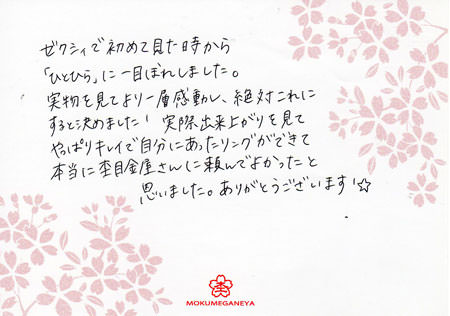 ゼクシィで初めて見た時から
「ひとひら」に一目ぼれしました。
実物を見てより一層感動し、絶対これに
すると決めました! 実際出来上がりを見て
やっぱりキレイで自分にあったリングができて
本当に杢目金屋さんに頼んでよかったと
思いました。ありがとうございます!☆
MOKUMEGANEYA